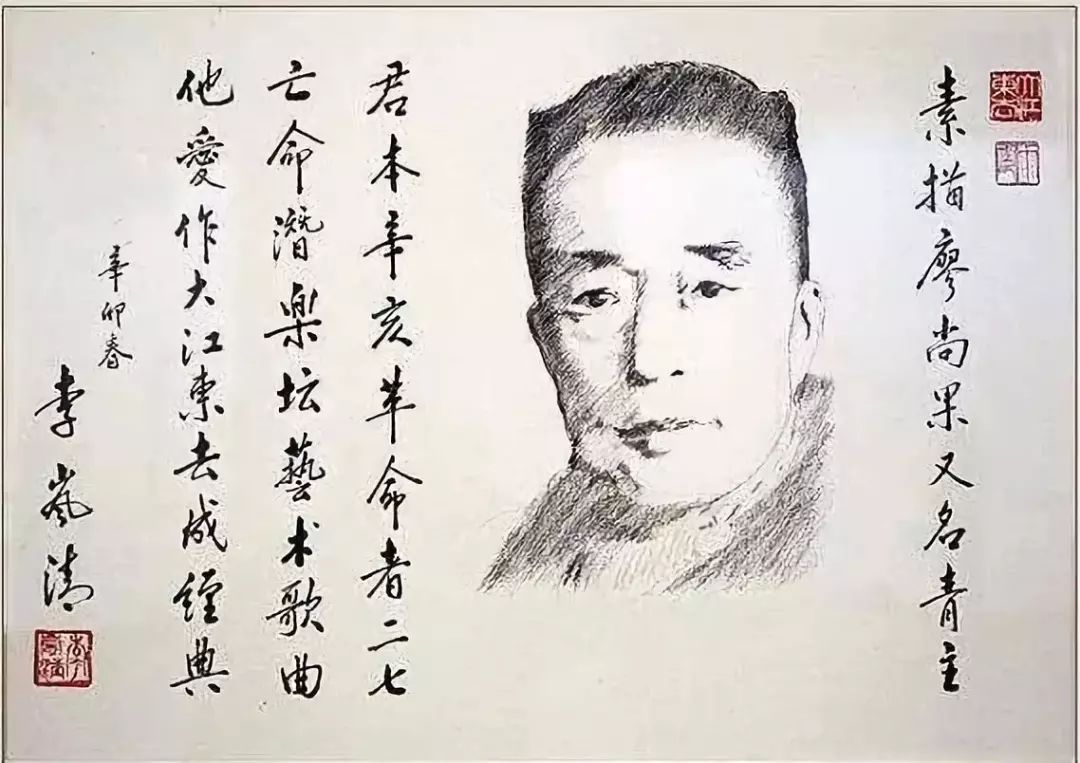 素描廖尚果又名青主
君本辛亥革命者二七
亡命潛樂坛藝术歌曲
他愛作大江東去成經典
辛卯春
李岚清